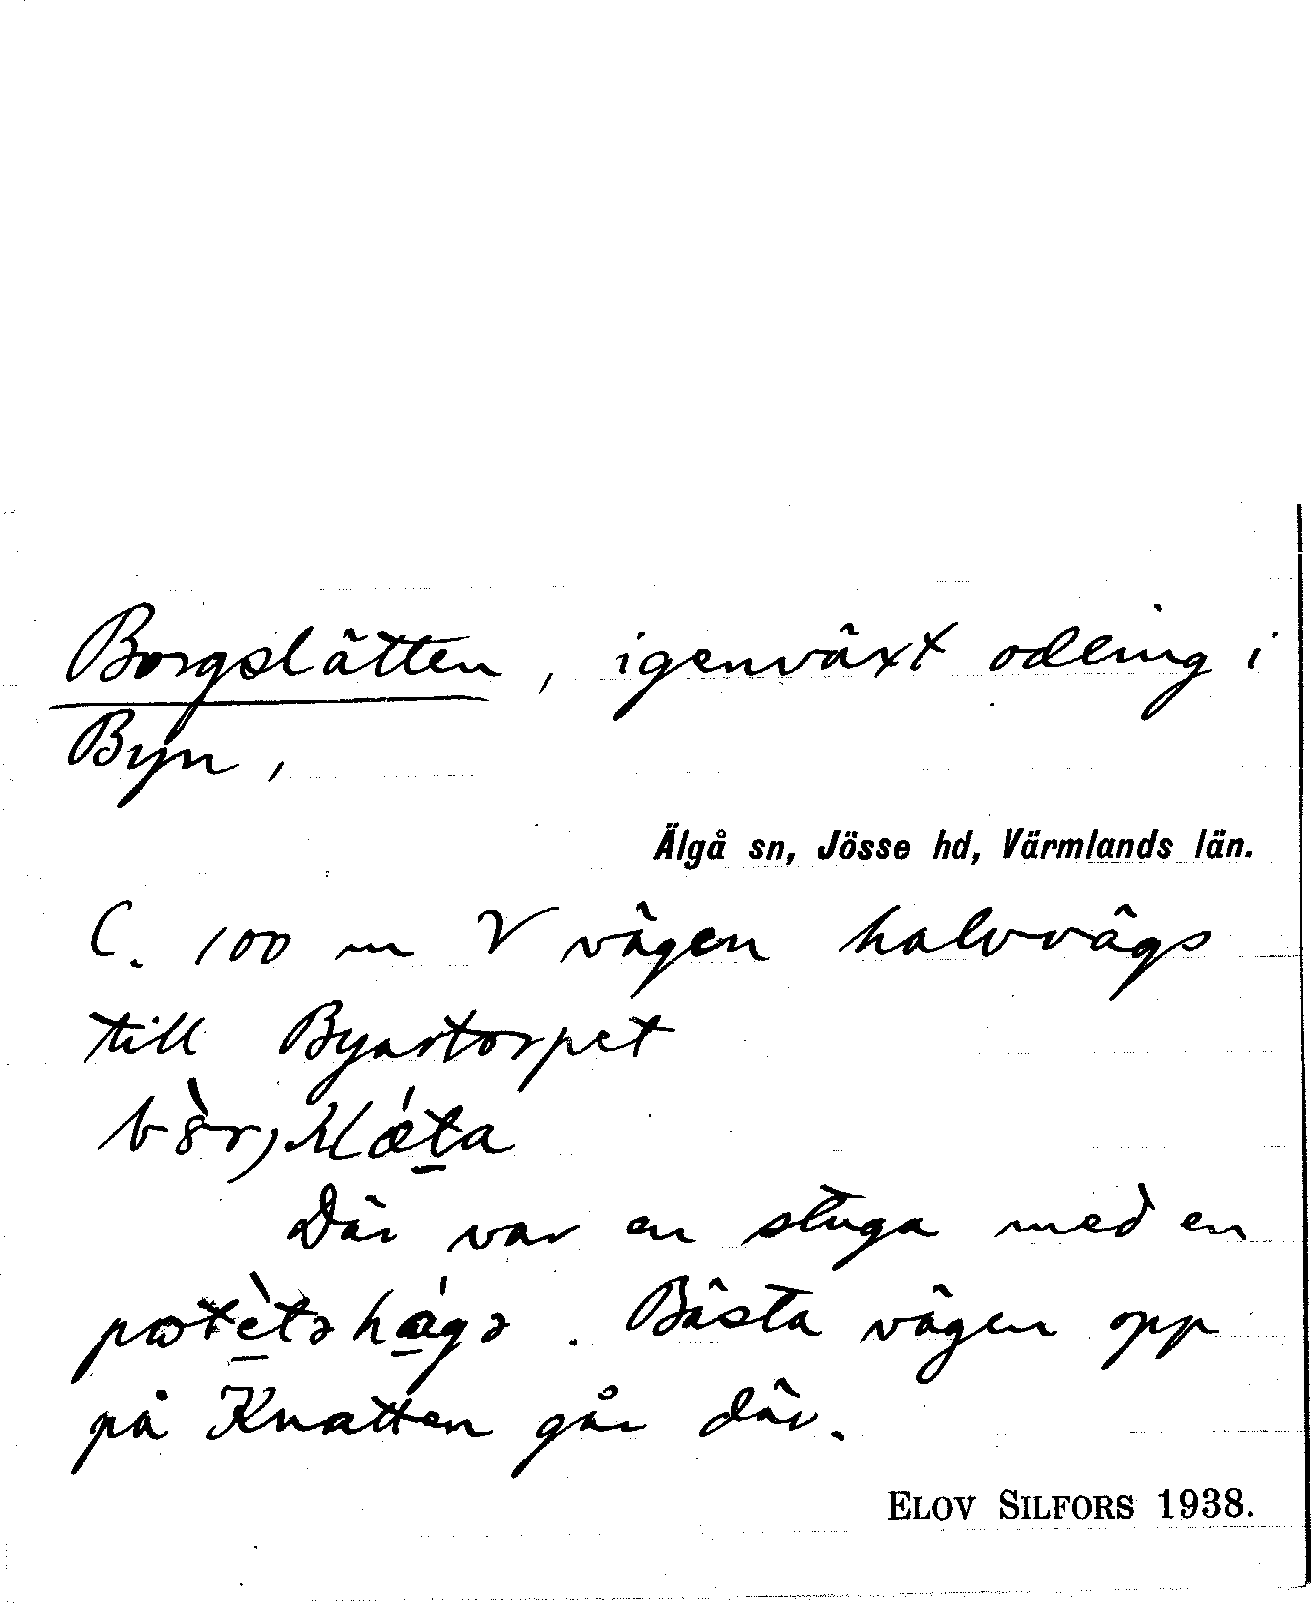 Borgslätten, igenväxt odling i
Byn,
Älgå sn, Jösse hd, Värmlands län.
C. 100 m V vägen halvvägs
till Bynstorpet
Där var en stuga med en
. Bästa vägen opp
på Knatten går där.
ELOV SILFORS 1938.